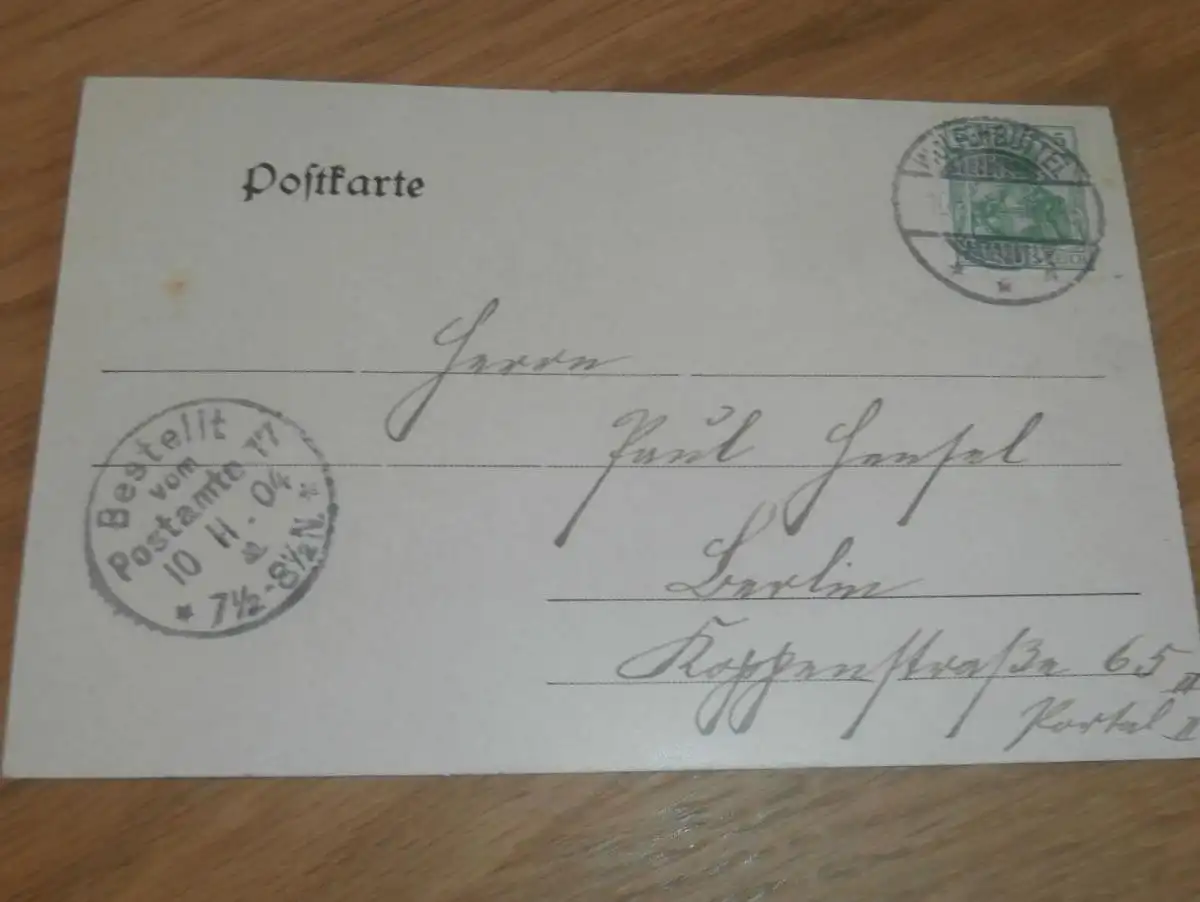 Postkarte
WOLFENBÜTTEL
Herrn
Paul Hensel
Berlin
Koppenstraße 65 III
Portal II
Bestellt
vom
Postamte 17
10 11. 04
7½-8½N.